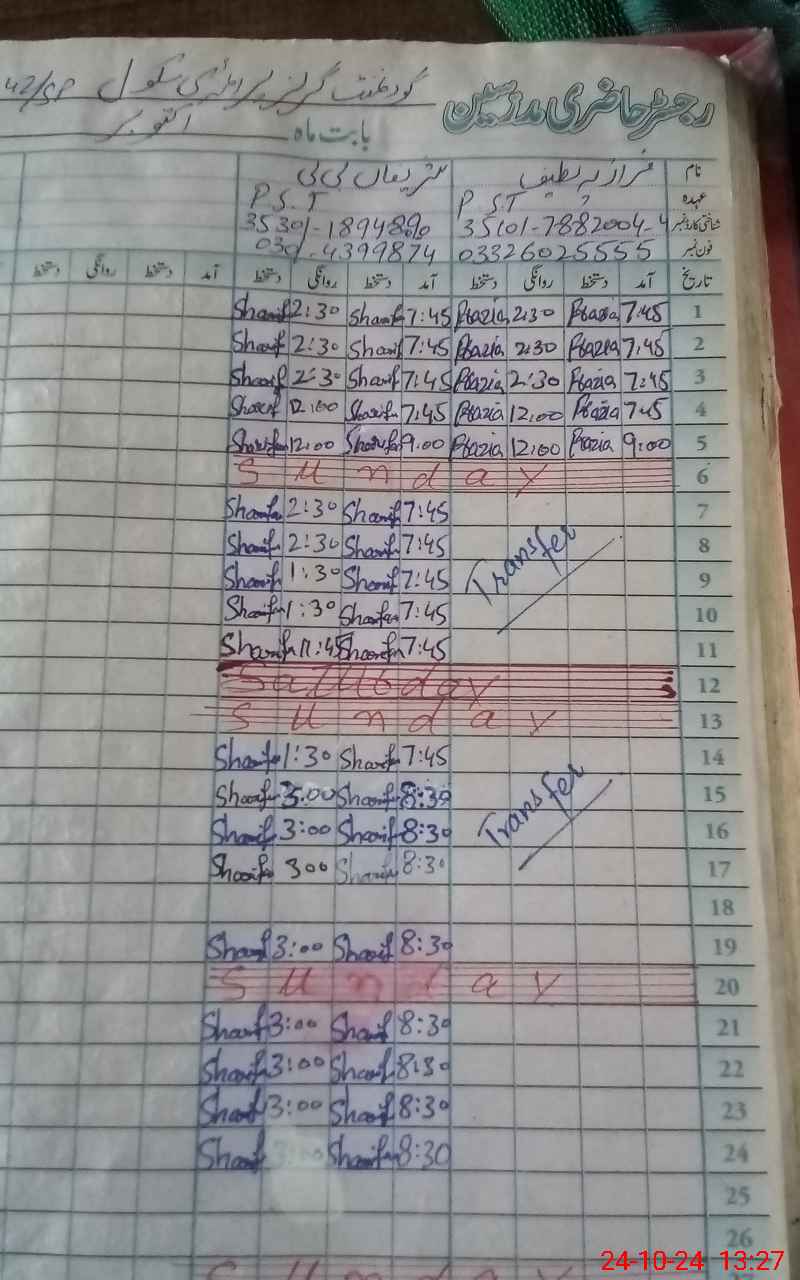 رجسٹر حاضری مدرسین گورنمنٹ گرلز پرائمری سکول 42/SP
بابت ماہ اکتوبر
نام شریفاں بی بی
عہدہ P.S.T P.S.T
شناختی کارڈ نمبر 35101-7882004-4
فون نمبر 03326025555 0301-4399874
تاریخ آمد دستخط روانگی دستخط آمد دستخط روانگی دستخط آمد دستخط روانگی دستخط
1 7:45 Razia 2:30 Razia 7:45 Sharif 2:30 Sharif
2 7:45 Razia 2:30 Razia 7:45 Sharif 2:30 Sharif
3 7:45 Razia 2:30 Razia 7:45 Sharif 2:30 Sharif
4 7:45 Razia 12:00 Razia 7:45 Sharifa 12:00 Sharif
5 9:00 Razia 12:00 Razia 9:00 Sharifa 12:00 Sharifa
6 Sunday
7 7:45 Sharif 2:30 Sharifa
8 Transfer 7:45 Sharif 2:30 Sharif
9 7:45 Sharif 1:30 Sharif
10 7:45 Sharifa 1:30 Sharifa
11 7:45 Sharifa 11:45 Sharifa
12 Saturday
13 Sunday
14 7:45 Sharif 1:30 Sharif
15 Transfer 8:30 Sharif 3:00 Sharif
16 8:30 Sharif 3:00 Sharif
17 8:30 Sharif 300 Sharif
18
19 8:30 Sharif 3:00 Sharif
20 Sunday
21 8:30 Sharif 3:00 Sharif
22 8:30 Sharif 3:00 Sharif
23 8:30 Sharif 3:00 Sharif
24 8:30 Sharifa 3:00 Sharif
25
26
24-10-24 13:27